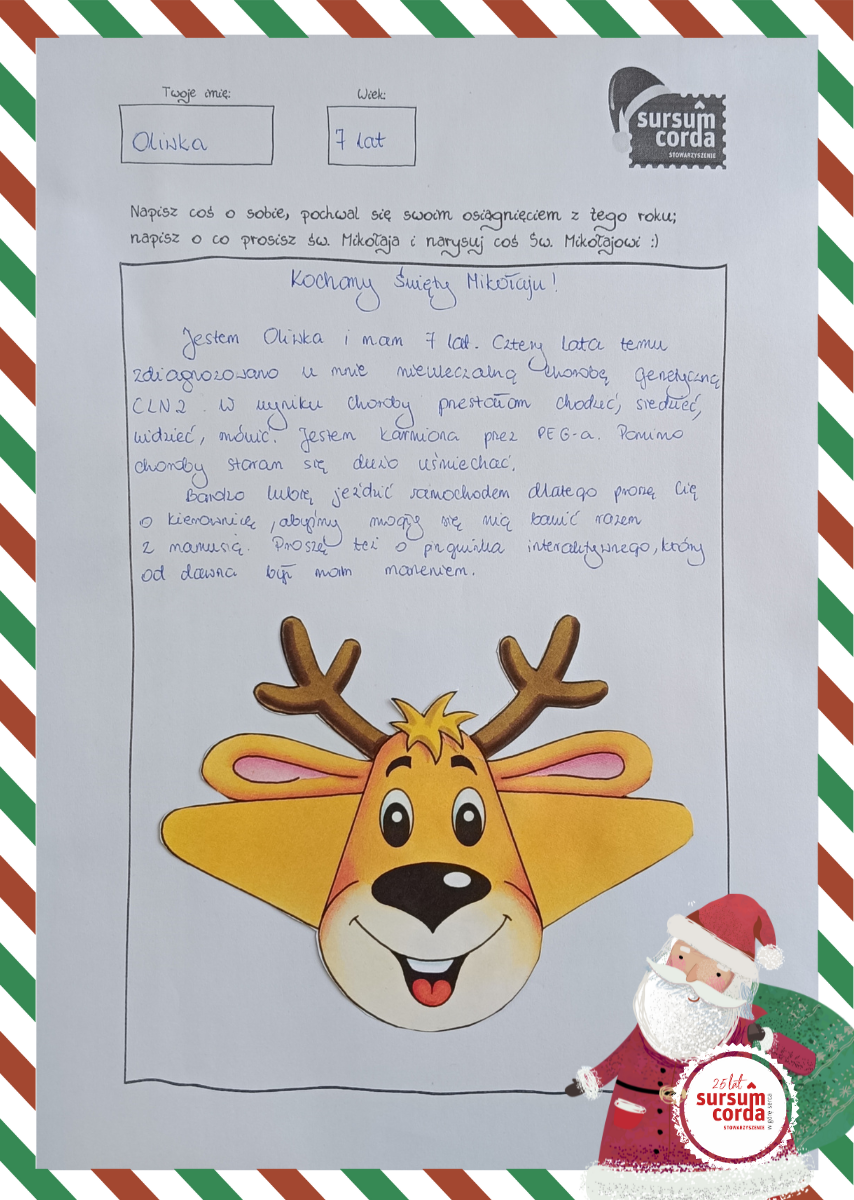 Twoje imię:
Wiek:
Oliwka
7 lat
sursum
corda
STOWARZYSZENIE
Napisz coś o sobie, pochwal się swoim osiągnięciem z tego roku;
napisz o co prosisz św. Mikołaja i narysuj coś Św. Mikołajowi :)
Kochany Święty Mikołaju!
Jestem Oliwka i mam 7 lat. Cztery lata temu
zdiagnozowano u mnie nieuleczalną chorobę genetyczną
CLN2. W wyniku choroby przestałam chodzić, siedzieć,
widzieć, mówić. Jestem karmiona przez PEG-a. Pomimo
choroby staram się dużo uśmiechać.
Bardzo lubię jeździć samochodem dlatego proszę Cię
o kierownicę, abyśmy mogły się nią bawić razem
z mamusią. Proszę też o pingwinka interaktywnego, który
od dawna był moim marzeniem.
25 lat
sursum
corda
STOWARZYSZENIE
w górę serca